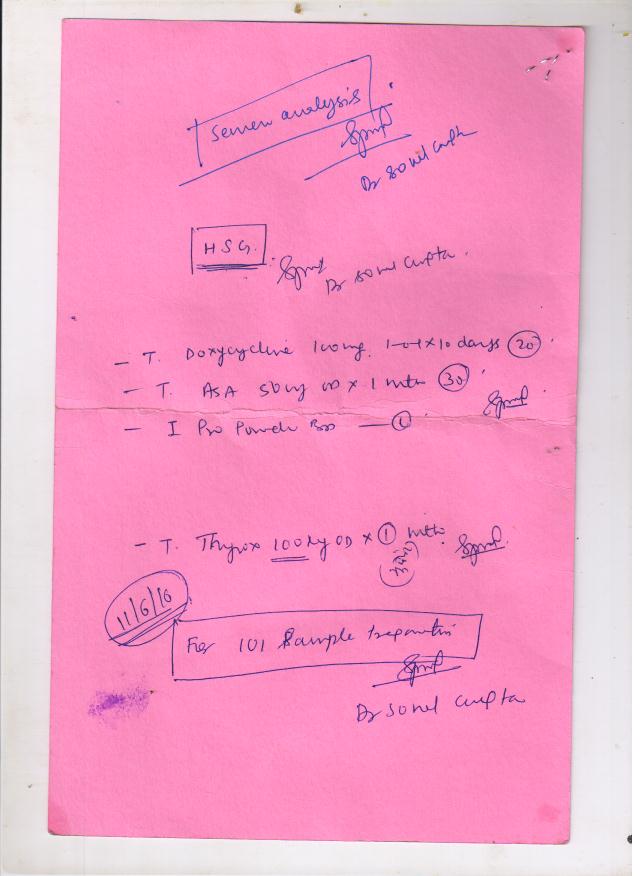 Semen analysis
Dr Sonel Gupta
HSG.
Dr Sonel Gupta.
- T. Doxycycline 100mg. 1-0-1 x 10 days 20
- T. ASA 50mg OD x 1 mth 30
- I Pro Powder 1
- T. Thyrox 100 OD x 1 mth
11/6/16
For 101 Sample Preparation
Dr Sonel Gupta